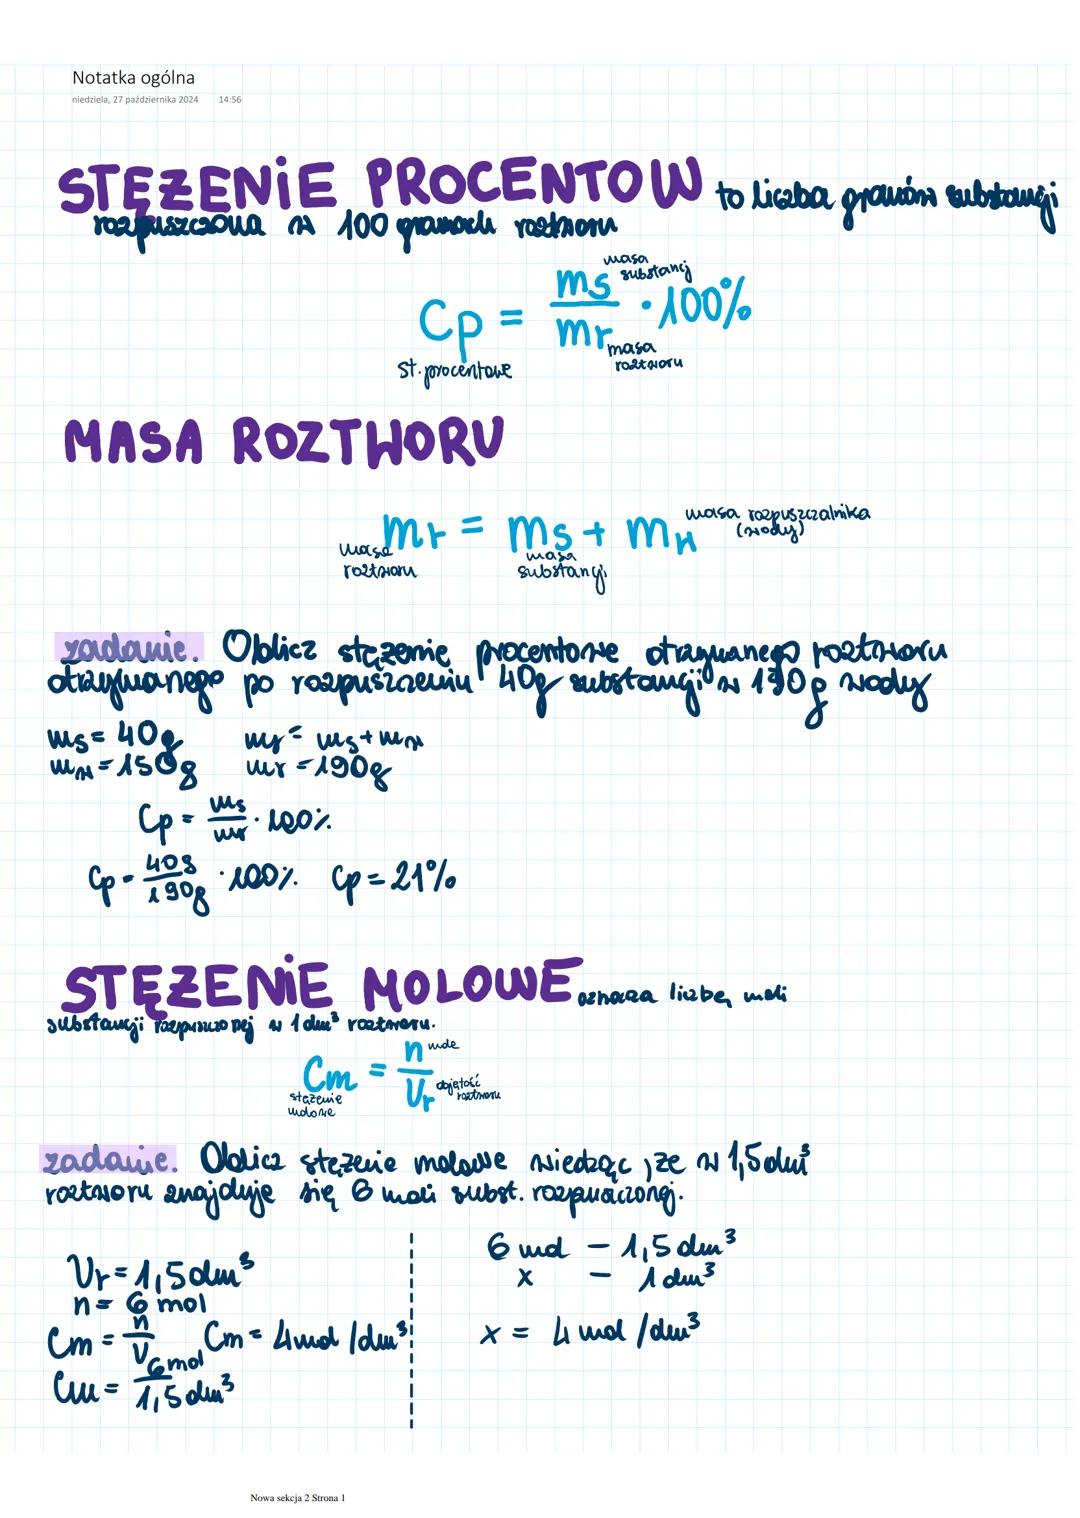 Notatka ogólna
niedziela, 27 października 2024 14:56
STĘŻENIE PROCENTOW to liczba gramów substancji
rozpuszczona w 100 gramach roztworu
Cp = ms/mr · 100%
masa substancj
masa roztworu
st. procentowe
MASA ROZTWORU
mr = ms + mw
masa rozpuszczalnika (wody)
masa roztworu
masa substancji
zadanie. Oblicz stężenie procentowe otrzymanego roztworu
otrzymanego po rozpuszczeniu 40g substancji w 190g wody
ms = 40g mr = ms + mw
mw = 150g mr = 190g
Cp = ms/mr · 100%
Cp = 40g/190g · 100% Cp = 21%
STĘŻENIE MOLOWE oznacza liczbę moli
substancji rozpuszczonej w 1 dm³ roztworu.
Cm = n/Vr
mole
stężenie molowe
objętość roztworu
zadanie. Oblicz stężenie molowe wiedząc, że w 1,5dm³
roztworu znajduje się 6 moli subst. rozpuszczonej.
Vr = 1,5dm³
n = 6 mol
Cm = n/V Cm = 4mol/dm³
Cm = 6mol/1,5dm³
6 mol – 1,5 dm³
x – 1 dm³
x = 4 mol/dm³
Nowa sekcja 2 Strona 1